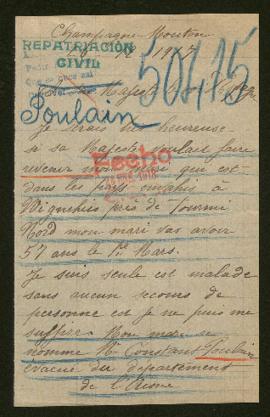 Champagne Mouton
1917
REPATRIACIÓN
CIVIL
50415
Poulain
Sa Majesté
Je serais très heureuse
si sa Majesté voulait faire
revenir mon mari qui est
dans les pays envahis à
Wignehies près de Fourmi
Nord mon mari vas avoir
57 ans le 1er Mars.
Hecho
Je suis seule est malade
sans aucun secours de
personne est je ne puis me
suffire. Mon mari se
nomme Mr Constant Poulain
évacué du département
de l'Aisne